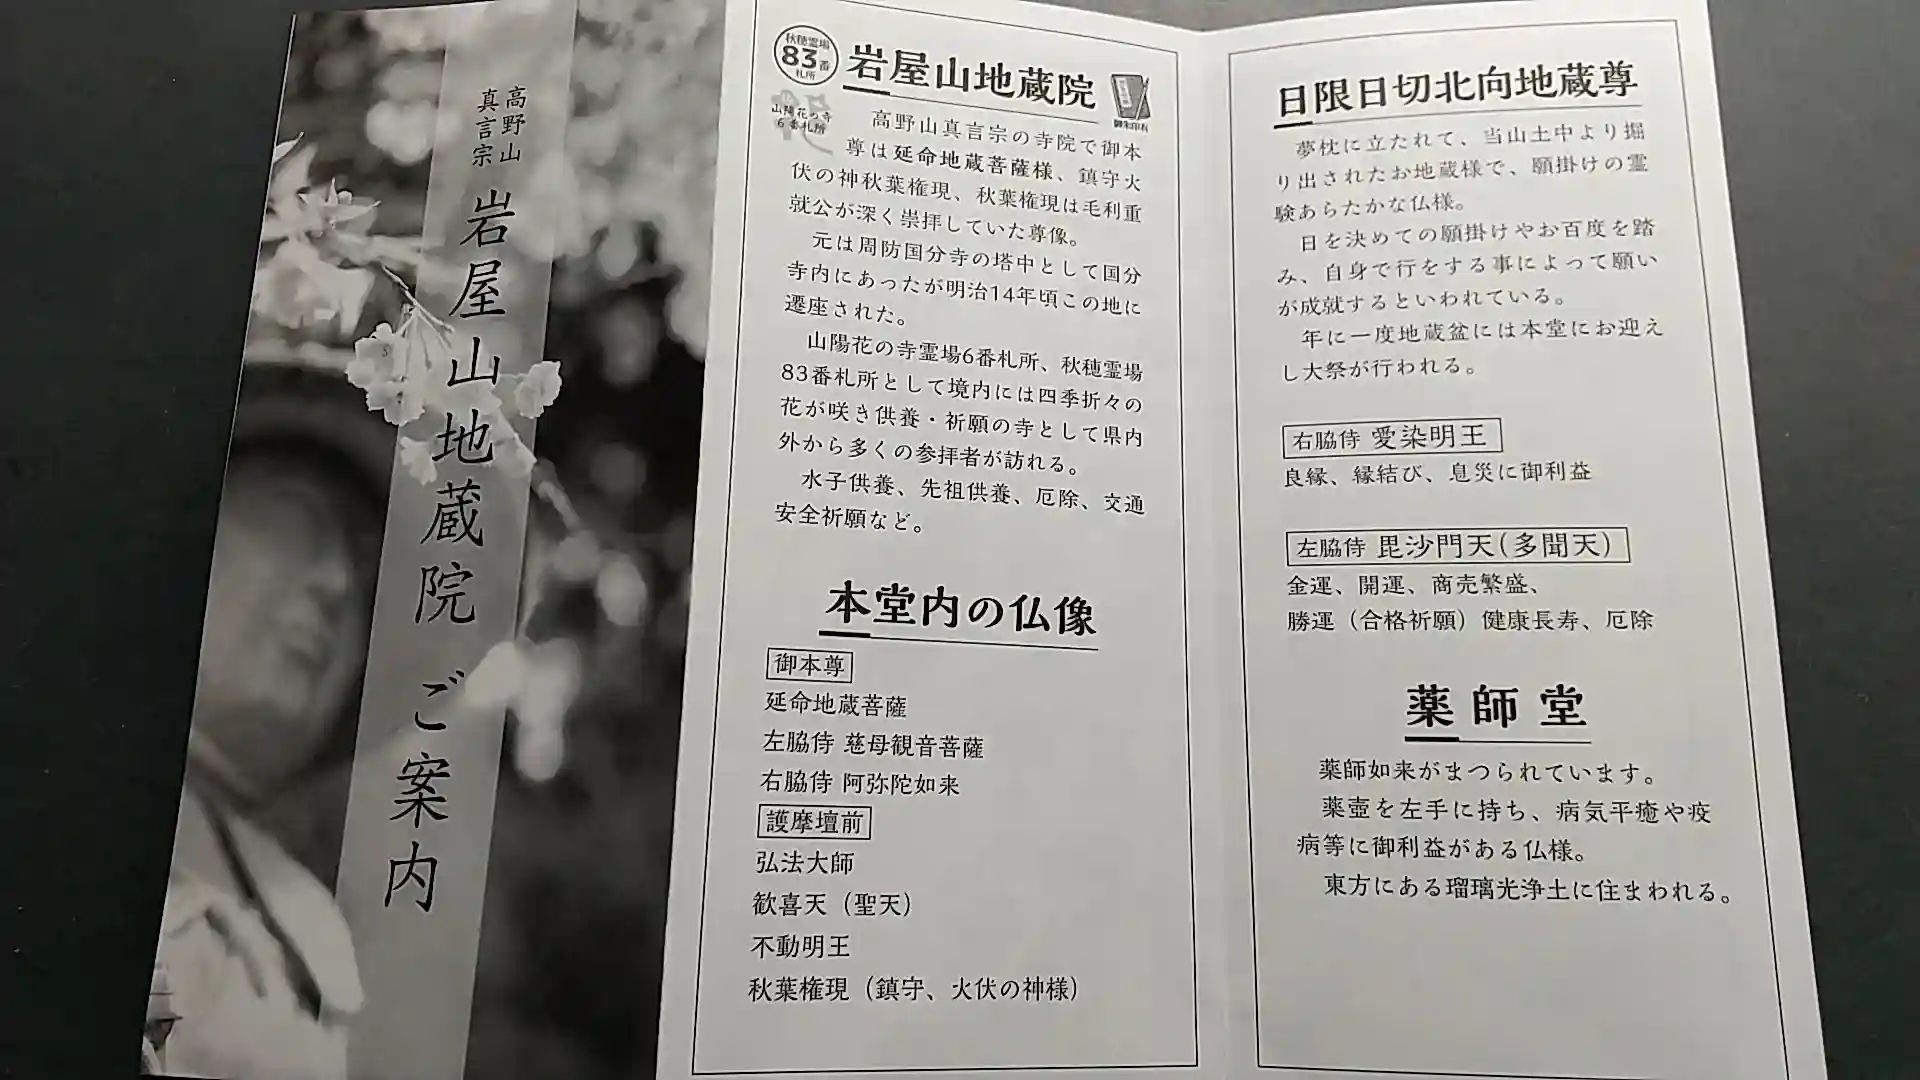 高野山
真言宗
岩屋山地蔵院 ご案内
秋穂霊場
83番
札所
岩屋山地蔵院
御朱印有
山陽花の寺
6番札所
高野山真言宗の寺院で御本
尊は延命地蔵菩薩様、鎮守火
伏の神秋葉権現、秋葉権現は毛利重
就公が深く崇拝していた尊像。
元は周防国分寺の塔中として国分
寺内にあったが明治14年頃この地に
遷座された。
山陽花の寺霊場6番札所、秋穂霊場
83番札所として境内には四季折々の
花が咲き供養・祈願の寺として県内
外から多くの参拝者が訪れる。
水子供養、先祖供養、厄除、交通
安全祈願など。
本堂内の仏像
御本尊
延命地蔵菩薩
左脇侍 慈母観音菩薩
右脇侍 阿弥陀如来
護摩壇前
弘法大師
歓喜天（聖天）
不動明王
秋葉権現（鎮守、火伏の神様）
日限日切北向地蔵尊
夢枕に立たれて、当山土中より掘
り出されたお地蔵様で、願掛けの霊
験あらたかな仏様。
日を決めての願掛けやお百度を踏
み、自身で行をする事によって願い
が成就するといわれている。
年に一度地蔵盆には本堂にお迎え
し大祭が行われる。
右脇侍 愛染明王
良縁、縁結び、息災に御利益
左脇侍 毘沙門天（多聞天）
金運、開運、商売繁盛、
勝運（合格祈願）健康長寿、厄除
薬師堂
薬師如来がまつられています。
薬壺を左手に持ち、病気平癒や疫
病等に御利益がある仏様。
東方にある瑠璃光浄土に住まわれる。